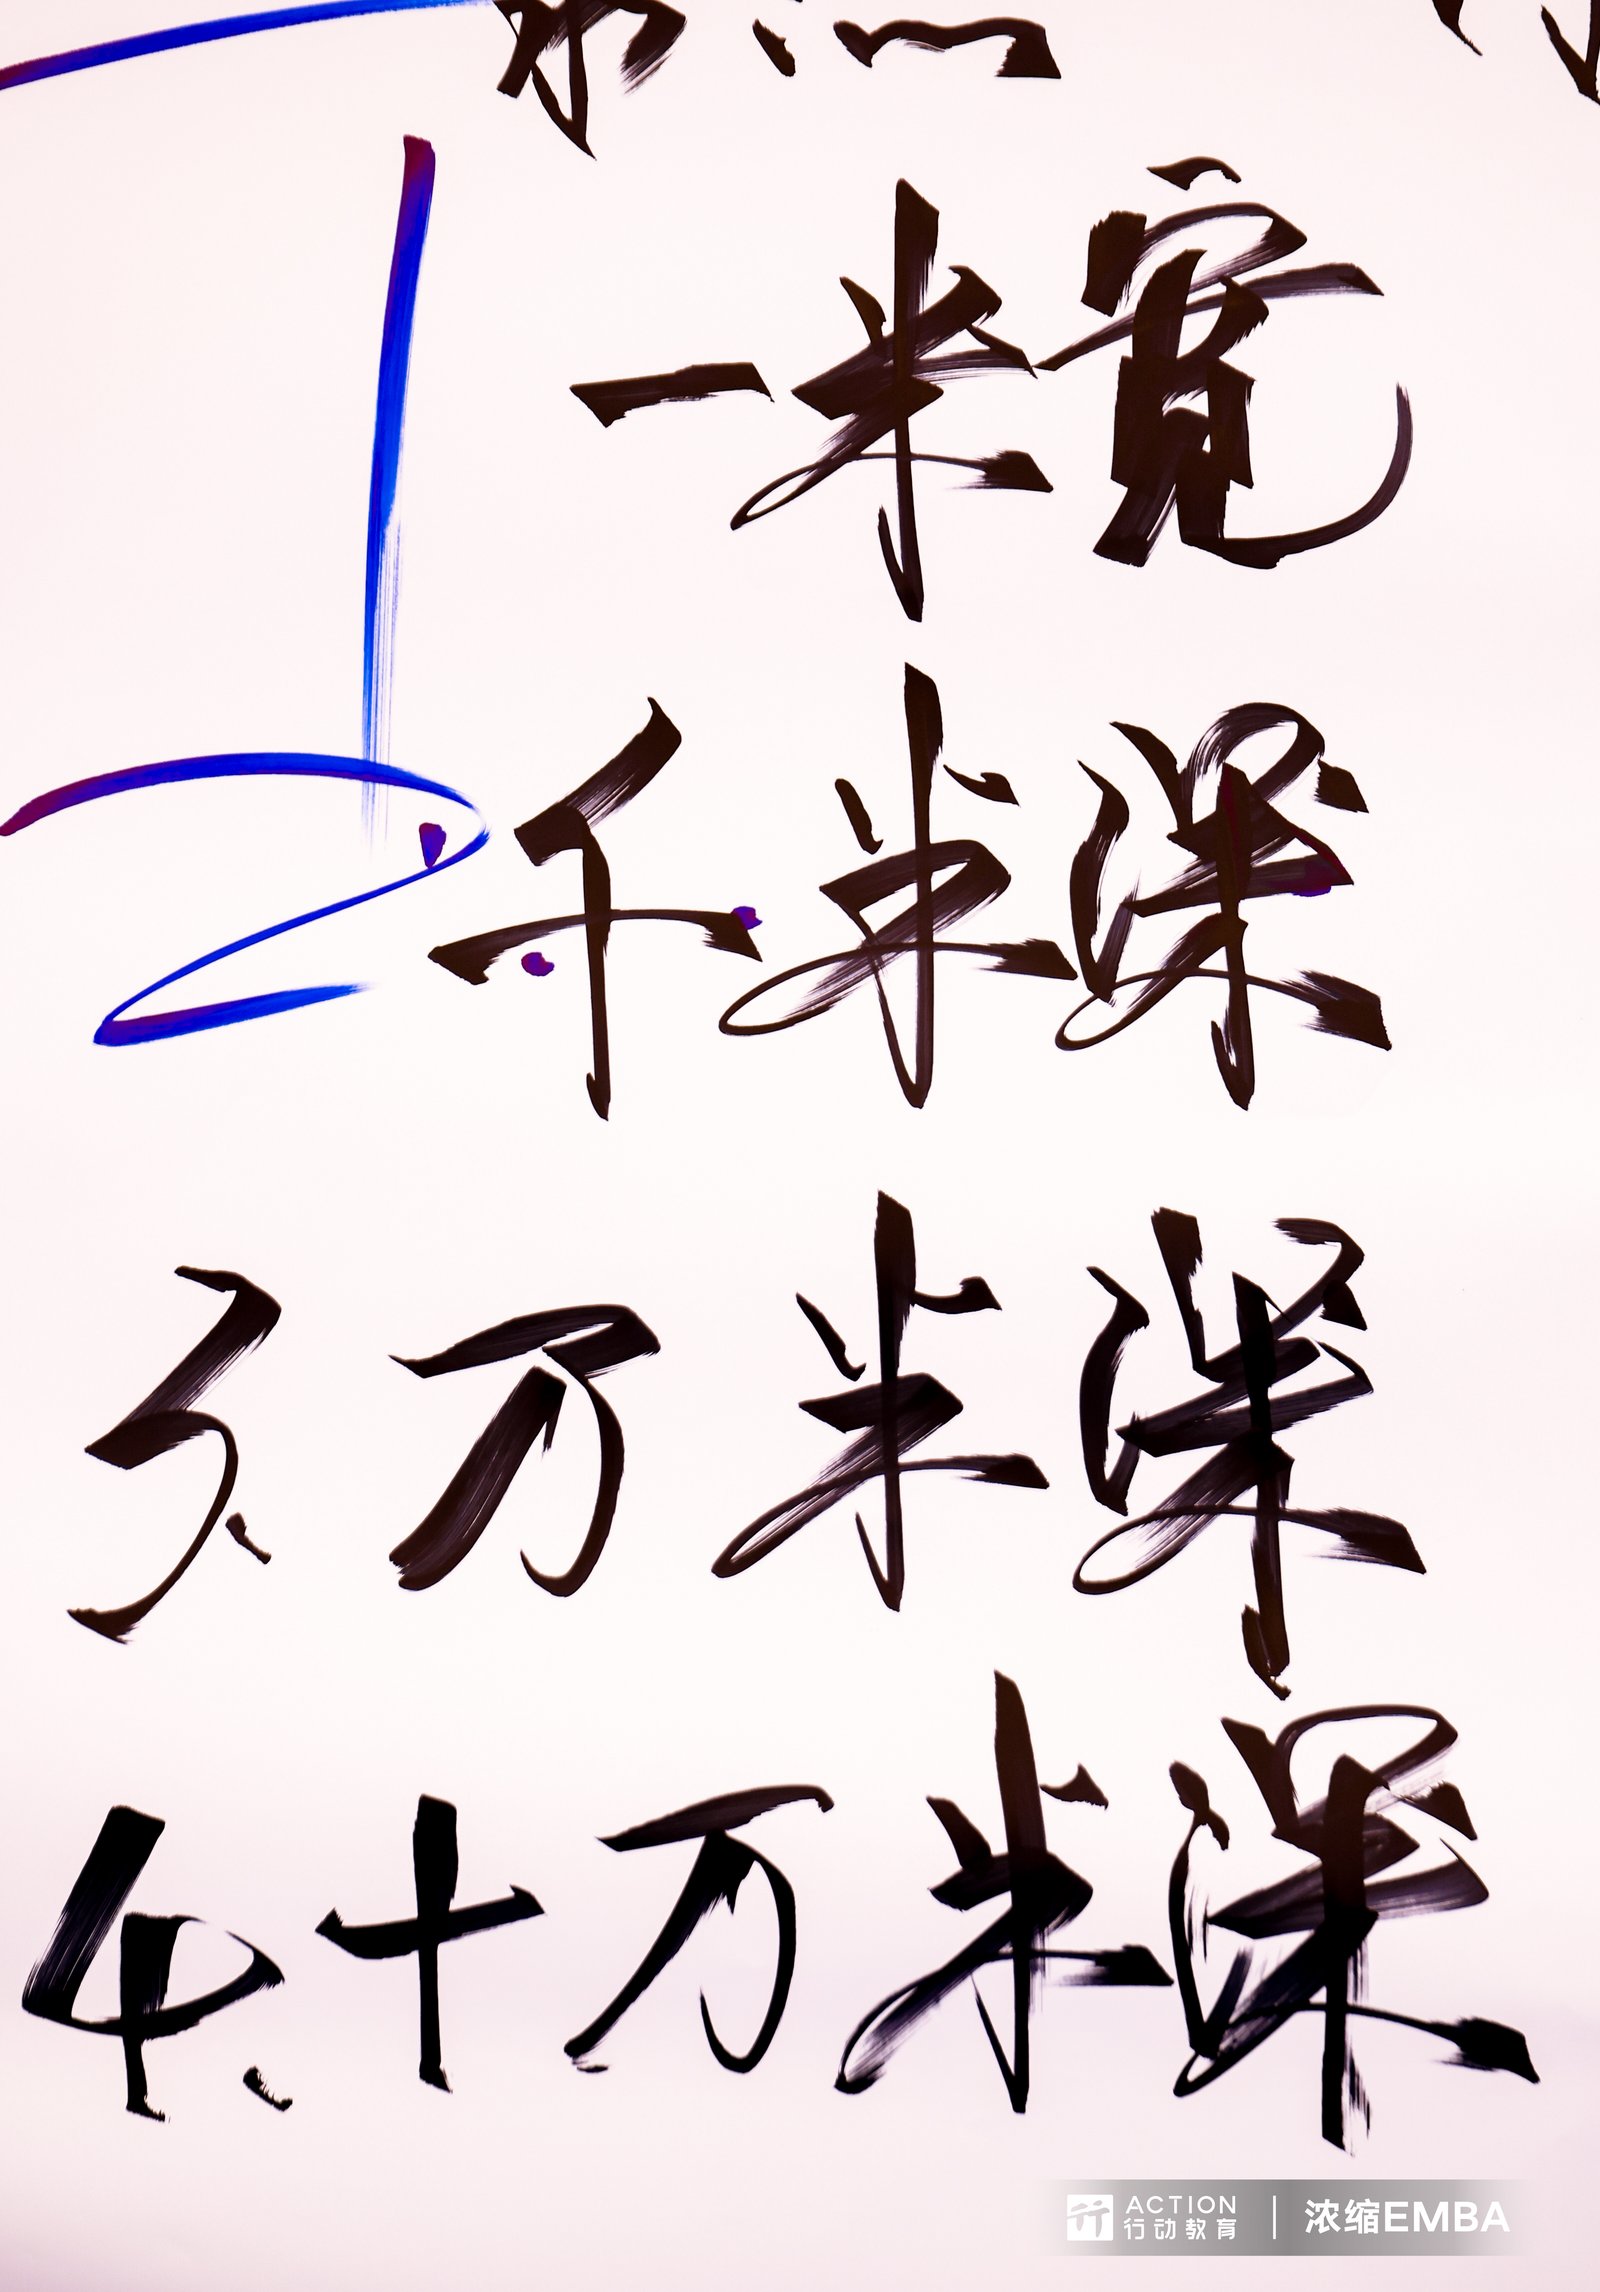 1
一米宽
2. 千米深
3. 万米深
4. 十万米深
ACTION 行动教育 | 浓缩EMBA